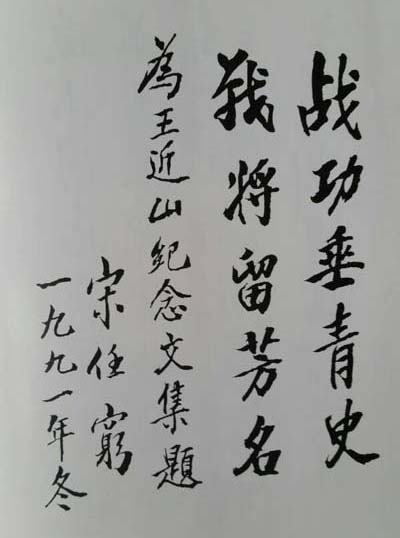 战功垂青史
战将留芳名
為王近山紀念文集題
宋任窮
一九九一年冬